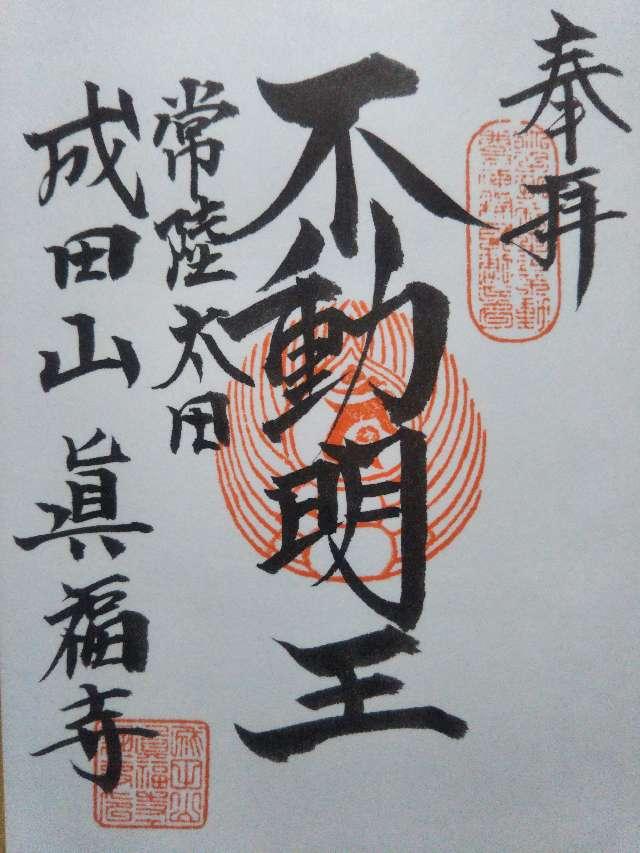 奉拝
不動明王
常陸太田
成田山眞福寺